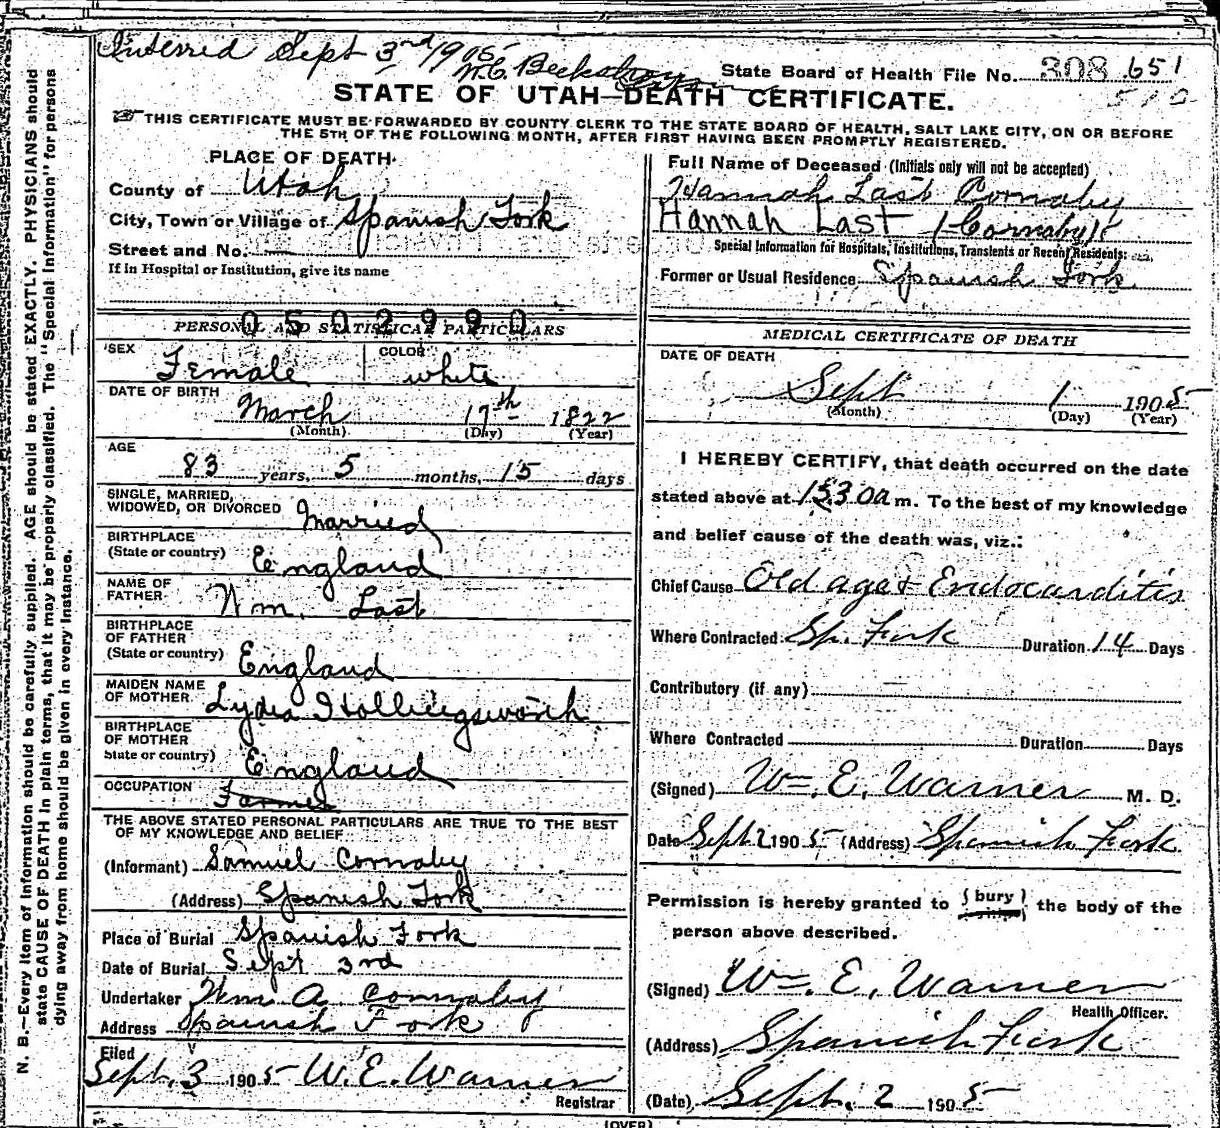 Interred Sept 3rd 1905
W.C. Beckstrom
Sexton
State Board of Health File No. 308 651
510
STATE OF UTAH—DEATH CERTIFICATE.
☞ THIS CERTIFICATE MUST BE FORWARDED BY COUNTY CLERK TO THE STATE BOARD OF HEALTH, SALT LAKE CITY, ON OR BEFORE
THE 5TH OF THE FOLLOWING MONTH, AFTER FIRST HAVING BEEN PROMPTLY REGISTERED.
PLACE OF DEATH.
County of Utah
City, Town or Village of Spanish Fork
Street and No. —
If in Hospital or Institution, give its name
Full Name of Deceased (Initials only will not be accepted)
Hannah Last Cornaby
Hannah Last (Cornaby)
Special Information for Hospitals, Institutions, Transients or Recent Residents:
Former or Usual Residence Spanish Fork
0502990
PERSONAL AND STATISTICAL PARTICULARS
SEX Female COLOR white
DATE OF BIRTH
March 17th 1822
(Month) (Day) (Year)
AGE
83 years, 5 months, 15 days
SINGLE, MARRIED,
WIDOWED, OR DIVORCED Married
BIRTHPLACE
(State or country) England
NAME OF
FATHER Wm. Last
BIRTHPLACE
OF FATHER
(State or country) England
MAIDEN NAME
OF MOTHER Lydia Hollingsworth
BIRTHPLACE
OF MOTHER
State or country) England
OCCUPATION Farmer
THE ABOVE STATED PERSONAL PARTICULARS ARE TRUE TO THE BEST
OF MY KNOWLEDGE AND BELIEF
(Informant) Samuel Cornaby
(Address) Spanish Fork
Place of Burial Spanish Fork
Date of Burial Sept 3rd
Undertaker Wm A Cornaby
Address Spanish Fork
Filed
Sept. 3 1905 W.E. Warner
Registrar
MEDICAL CERTIFICATE OF DEATH
DATE OF DEATH
Sept 1 1905
(Month) (Day) (Year)
I HEREBY CERTIFY, that death occurred on the date
stated above at a m. To the best of my knowledge
and belief cause of the death was, viz.:
Chief Cause Old age & Endocarditis
Where Contracted Sp. Fork Duration 14 Days
Contributory (if any) —
Where Contracted Duration Days
(Signed) Wm. E. Warner M. D.
Date Sept 2 1905 (Address) Spanish Fork.
Permission is hereby granted to { bury } the body of the
person above described.
(Signed) Wm. E. Warner
Health Officer.
(Address) Spanish Fork
(Date) Sept. 2 1905
(OVER)
N. B.—Every item of information should be carefully supplied. AGE should be stated EXACTLY. PHYSICIANS should
state CAUSE OF DEATH in plain terms, that it may be properly classified. The "Special Information" for persons
dying away from home should be given in every instance.